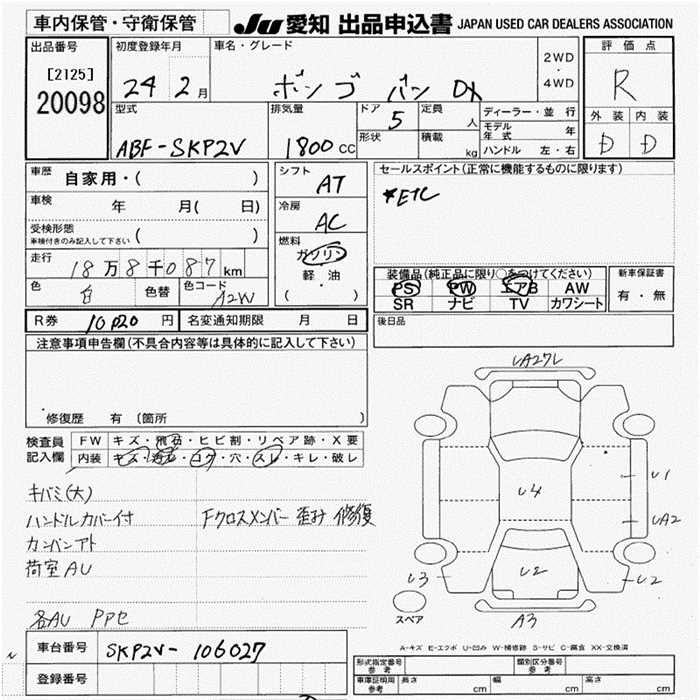 車内保管・守衛保管
JU 愛知 出品申込書 JAPAN USED CAR DEALERS ASSOCIATION
出品番号
[2125]
20098
初度登録年月
24 2月
車名・グレード
ボンゴ バン DX
2WD
・
4WD
評価点
R
外装 内装
D D
型式
ABF-SKP2V
排気量
1800 cc
ドア
5
定員
人
形状
積載
kg
ディーラー・並行
モデル年式 年
ハンドル 左・右
車歴 自家用・( )
車検 年 月( 日)
受検形態
車検付きのみ記入して下さい ( )
走行 18万8千087km
色 白 色替 色コード A2W
シフト AT
冷房 AC
燃料
ガソリン
軽・油
( )
セールスポイント(正常に機能するものに限ります)
*ETC
装備品(純正品に限り○をつけてください)
PS PW エアB AW
SR ナビ TV カワシート
新車保証書
有・無
R券 10P20 円 名変通知期限 月 日
後日品
注意事項申告欄(不具合内容等は具体的に記入して下さい)
修復歴 有 〔箇所 〕
検査員
記入欄
FW キズ・飛石・ヒビ割・リペア跡・X要
内装 キズ・汚レ・コゲ・穴・スレ・キレ・破レ
キバミ(大)
ハンドルカバー付
Fクロスメンバー 歪み 修復
カンバンアト
荷室AU
各AU PPセ
UA27L
U4
U1
UA2
U3
U2
U2
A3
スペア
A-キズ E-エクボ U-凹み W-補修跡 S-サビ C-腐食 XX-交換済
車台番号 SKP2V-106027
登録番号
形式指定番号
参考
類別区分番号
参考
車庫証明用
参考
長さ cm 幅 cm 高さ cm